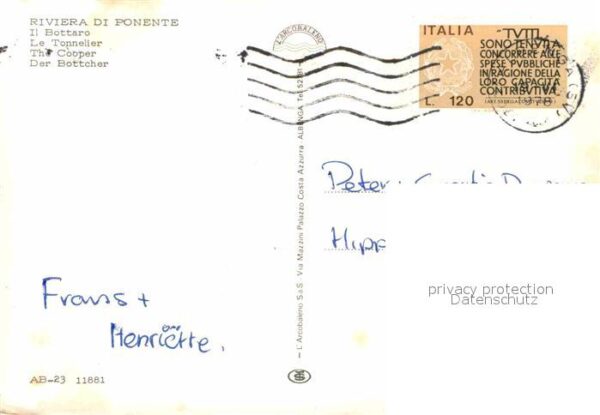 RIVIERA DI PONENTE
Il Bottaro
Le Tonnelier
The Cooper
Der Bottcher
L'ARCOBALENO
ITALIA
TUTTI
SONO TENUTI A
CONCORRERE ALLE
SPESE PUBBLICHE
IN RAGIONE DELLA
LORO CAPACITÀ
CONTRIBUTIVA
L. 120
L'Arcobaleno S.a.S. Via Mazzini Palazzo Costa Azzurra ALBENGA Tel.
Peter
privacy protection
Datenschutz
Frans +
Henriëtte.
AB-23 11881